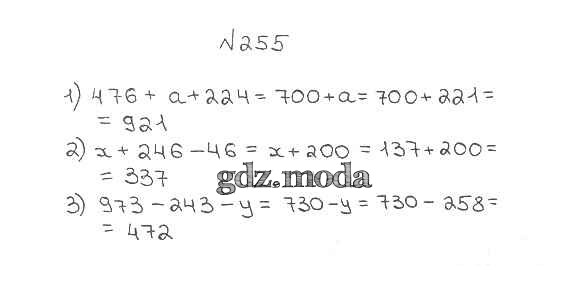 N255
1) 476 + a + 224 = 700 + a = 700 + 221 =
= 921
2) x + 246 - 46 = x + 200 = 137 + 200 =
= 337
gdz.moda
3) 973 - 243 - y = 730 - y = 730 - 258 =
= 472